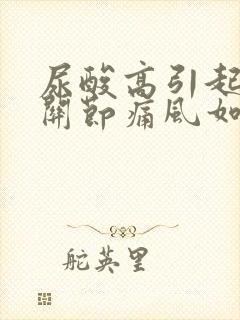 尿酸高引起
關節痛風如
舵英里